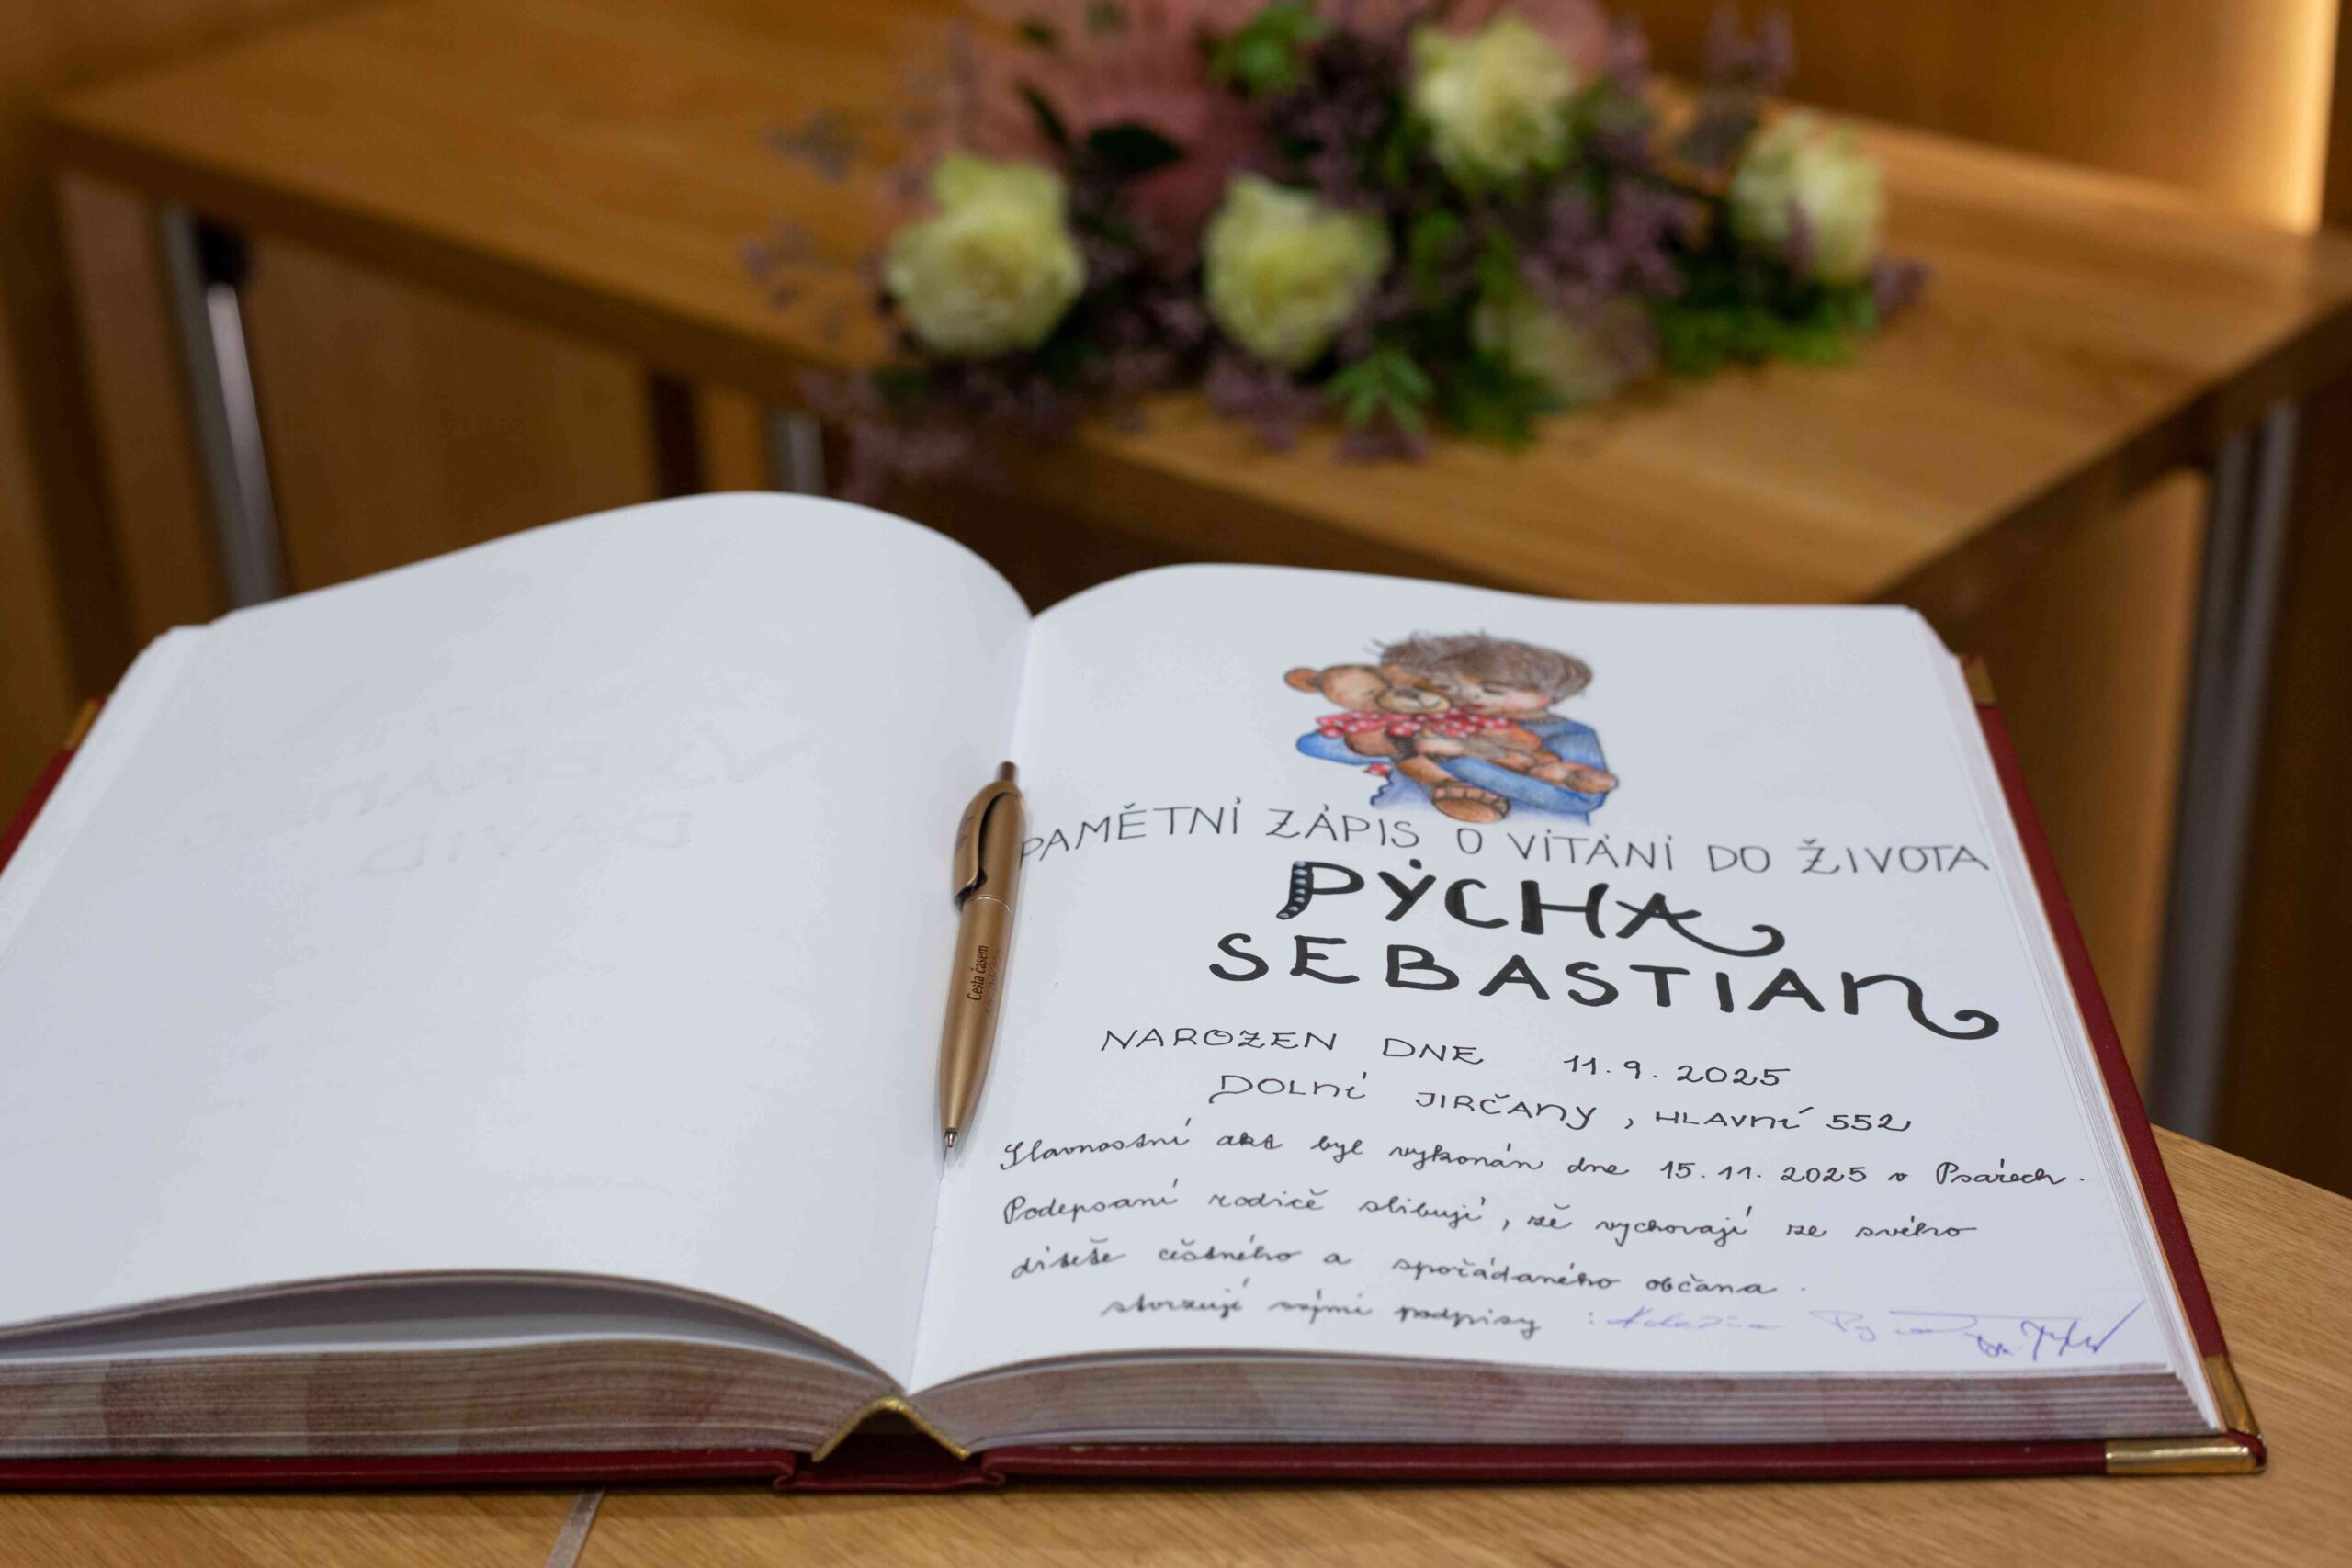 Cesta časem
PAMĚTNÍ ZÁPIS O VÍTÁNÍ DO ŽIVOTA
PÝCHA
SEBASTIAN
NAROZEN DNE 11.9.2025
DOLNÍ JIRČANY, HLAVNÍ 552
Slavnostní akt byl vykonán dne 15.11.2025 v Psárech.
Podepsaní rodiče slibují, že vychovají ze svého
dítěte čestného a spořádaného občana.
stvrzují svými podpisy :